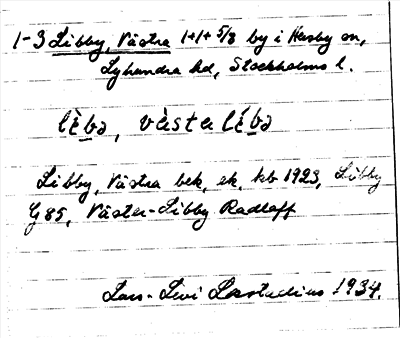 1-3 Libby, Västra 1+1+ 5/8 by i Husby sn,
Lyhundra hd, Stockholms l.
lèbə, västalíbə
Libby, Västra bek, ek, kb 1923, Libby
G 85, Väster-Libby Radloff
Lars-Levi Læstadius 1934.